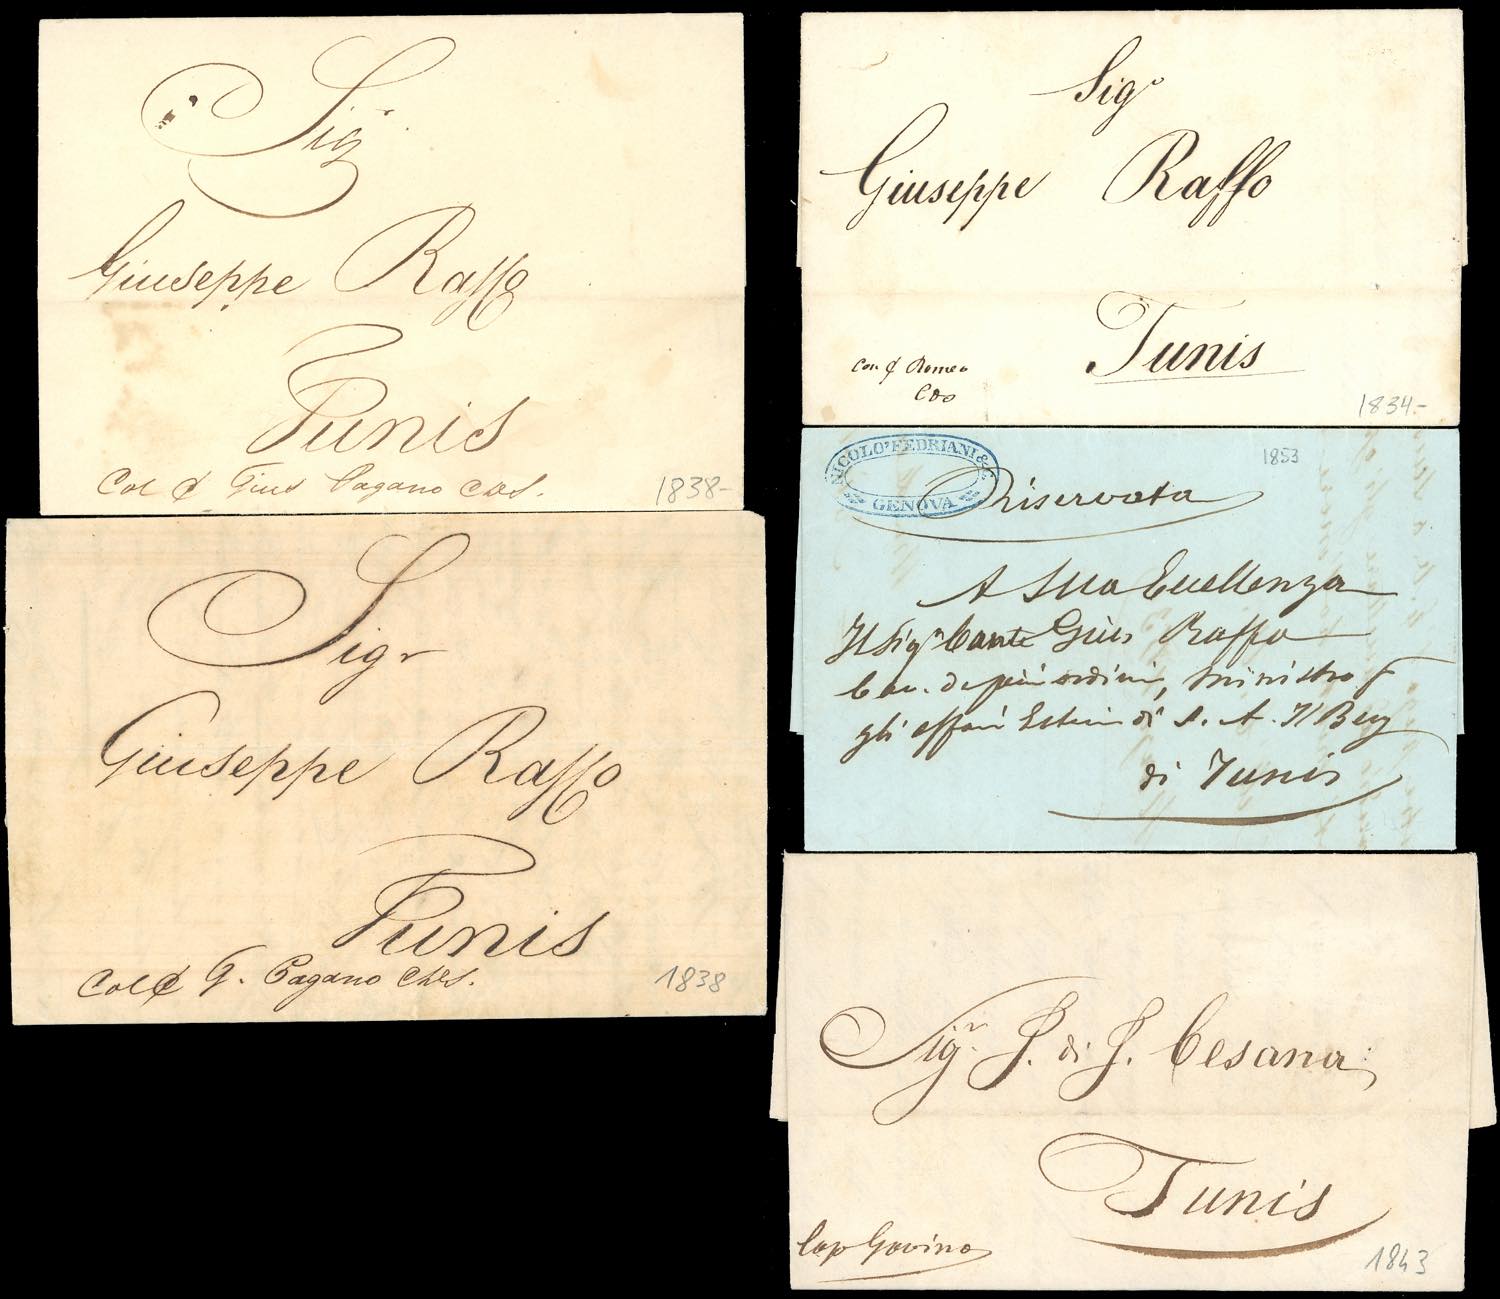 Sigr
Giuseppe Raffo
Tunis
Col C Gius Pagano
1838-
Sigr
Giuseppe Raffo
Tunis
Col C G. Pagano
1838
Sigr
Giuseppe Raffo
Tunis
Con C Romeo
1834-
NICOLO' FEDRIANI & C.
GENOVA
1853
Riservata
A Sua Eccellenza
Il Sigr Conte Gius Raffo
Cav. di più ordini, Ministro
gli affari Esteri di S. A. Il Bey
di Tunis
Sigr. J. di J. Cesana
Tunis
Cap Gavino
1843